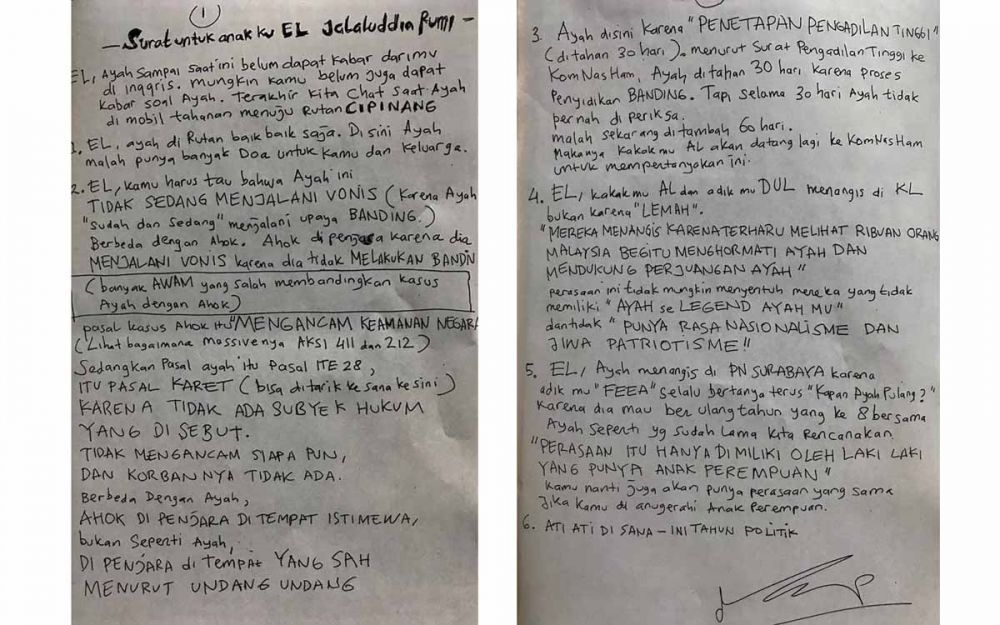 1
- Surat untuk anak ku EL Jalaluddin Rumi -
EL, Ayah sampai saat ini belum dapat kabar darimu
di inggris. mungkin kamu belum juga dapat
kabar soal Ayah. Terakhir kita Chat saat Ayah
di mobil tahanan menuju Rutan CIPINANG
1. EL, ayah di Rutan baik baik saja. Disini Ayah
malah punya banyak Doa untuk kamu dan keluarga.
2. EL, kamu harus tau bahwa Ayah ini
TIDAK SEDANG MENJALANI VONIS (karena Ayah
"sudah dan sedang" menjalani upaya BANDING.)
Berbeda dengan Ahok. Ahok di penjara karena dia
MENJALANI VONIS karena dia tidak MELAKUKAN BANDIN
(banyak AWAM yang salah membandingkan kasus
Ayah dengan Ahok)
pasal kasus Ahok itu "MENGANCAM KEAMANAN NEGARA
(Lihat bagaimana Massivenya AKSI 411 dan 212)
Sedangkan Pasal ayah itu Pasal ITE 28,
ITU PASAL KARET (bisa ditarik ke sana ke sini)
KARENA TIDAK ADA SUBYEK HUKUM
YANG DI SEBUT.
TIDAK MENGANCAM SIAPA PUN,
DAN KORBAN NYA TIDAK ADA.
Berbeda Dengan Ayah,
AHOK DI PENJARA DI TEMPAT ISTIMEWA,
bukan Seperti Ayah,
DI PENJARA di Tempat YANG SAH
MENURUT UNDANG UNDANG
3. Ayah disini karena "PENETAPAN PENGADILAN TINGGI"
(ditahan 30 hari). menurut Surat Pengadilan Tinggi ke
KomNasHam, Ayah ditahan 30 hari karena proses
Penyidikan BANDING. Tapi selama 30 hari Ayah tidak
pernah di periksa.
malah sekarang ditambah 60 hari.
Makanya kakak mu AL akan datang lagi ke KomNasHam
untuk mempertanyakan ini.
4. EL, kakak mu AL dan adik mu DUL menangis di KL
bukan karena "LEMAH".
"MEREKA MENANGIS KARENA TERHARU MELIHAT RIBUAN ORANG
MALAYSIA BEGITU MENGHORMATI AYAH DAN
MENDUKUNG PERJUANGAN AYAH"
perasaan ini tidak mungkin menyentuh mereka yang tidak
memiliki "AYAH se LEGEND AYAH MU"
dan tidak "PUNYA RASA NASIONALISME DAN
JIWA PATRIOTISME!!
5. EL, Ayah menangis di PN SURABAYA karena
adik mu "FEEA" selalu bertanya terus "Kapan Ayah Pulang?"
karena dia mau ber ulang tahun yang ke 8 bersama
Ayah seperti yg sudah lama kita rencanakan.
"PERASAAN ITU HANYA DI MILIKI OLEH LAKI LAKI
YANG PUNYA ANAK PEREMPUAN"
kamu nanti juga akan punya perasaan yang sama
Jika kamu di anugerahi Anak Perempuan.
6. ATI ATI DI SANA - INI TAHUN POLITIK